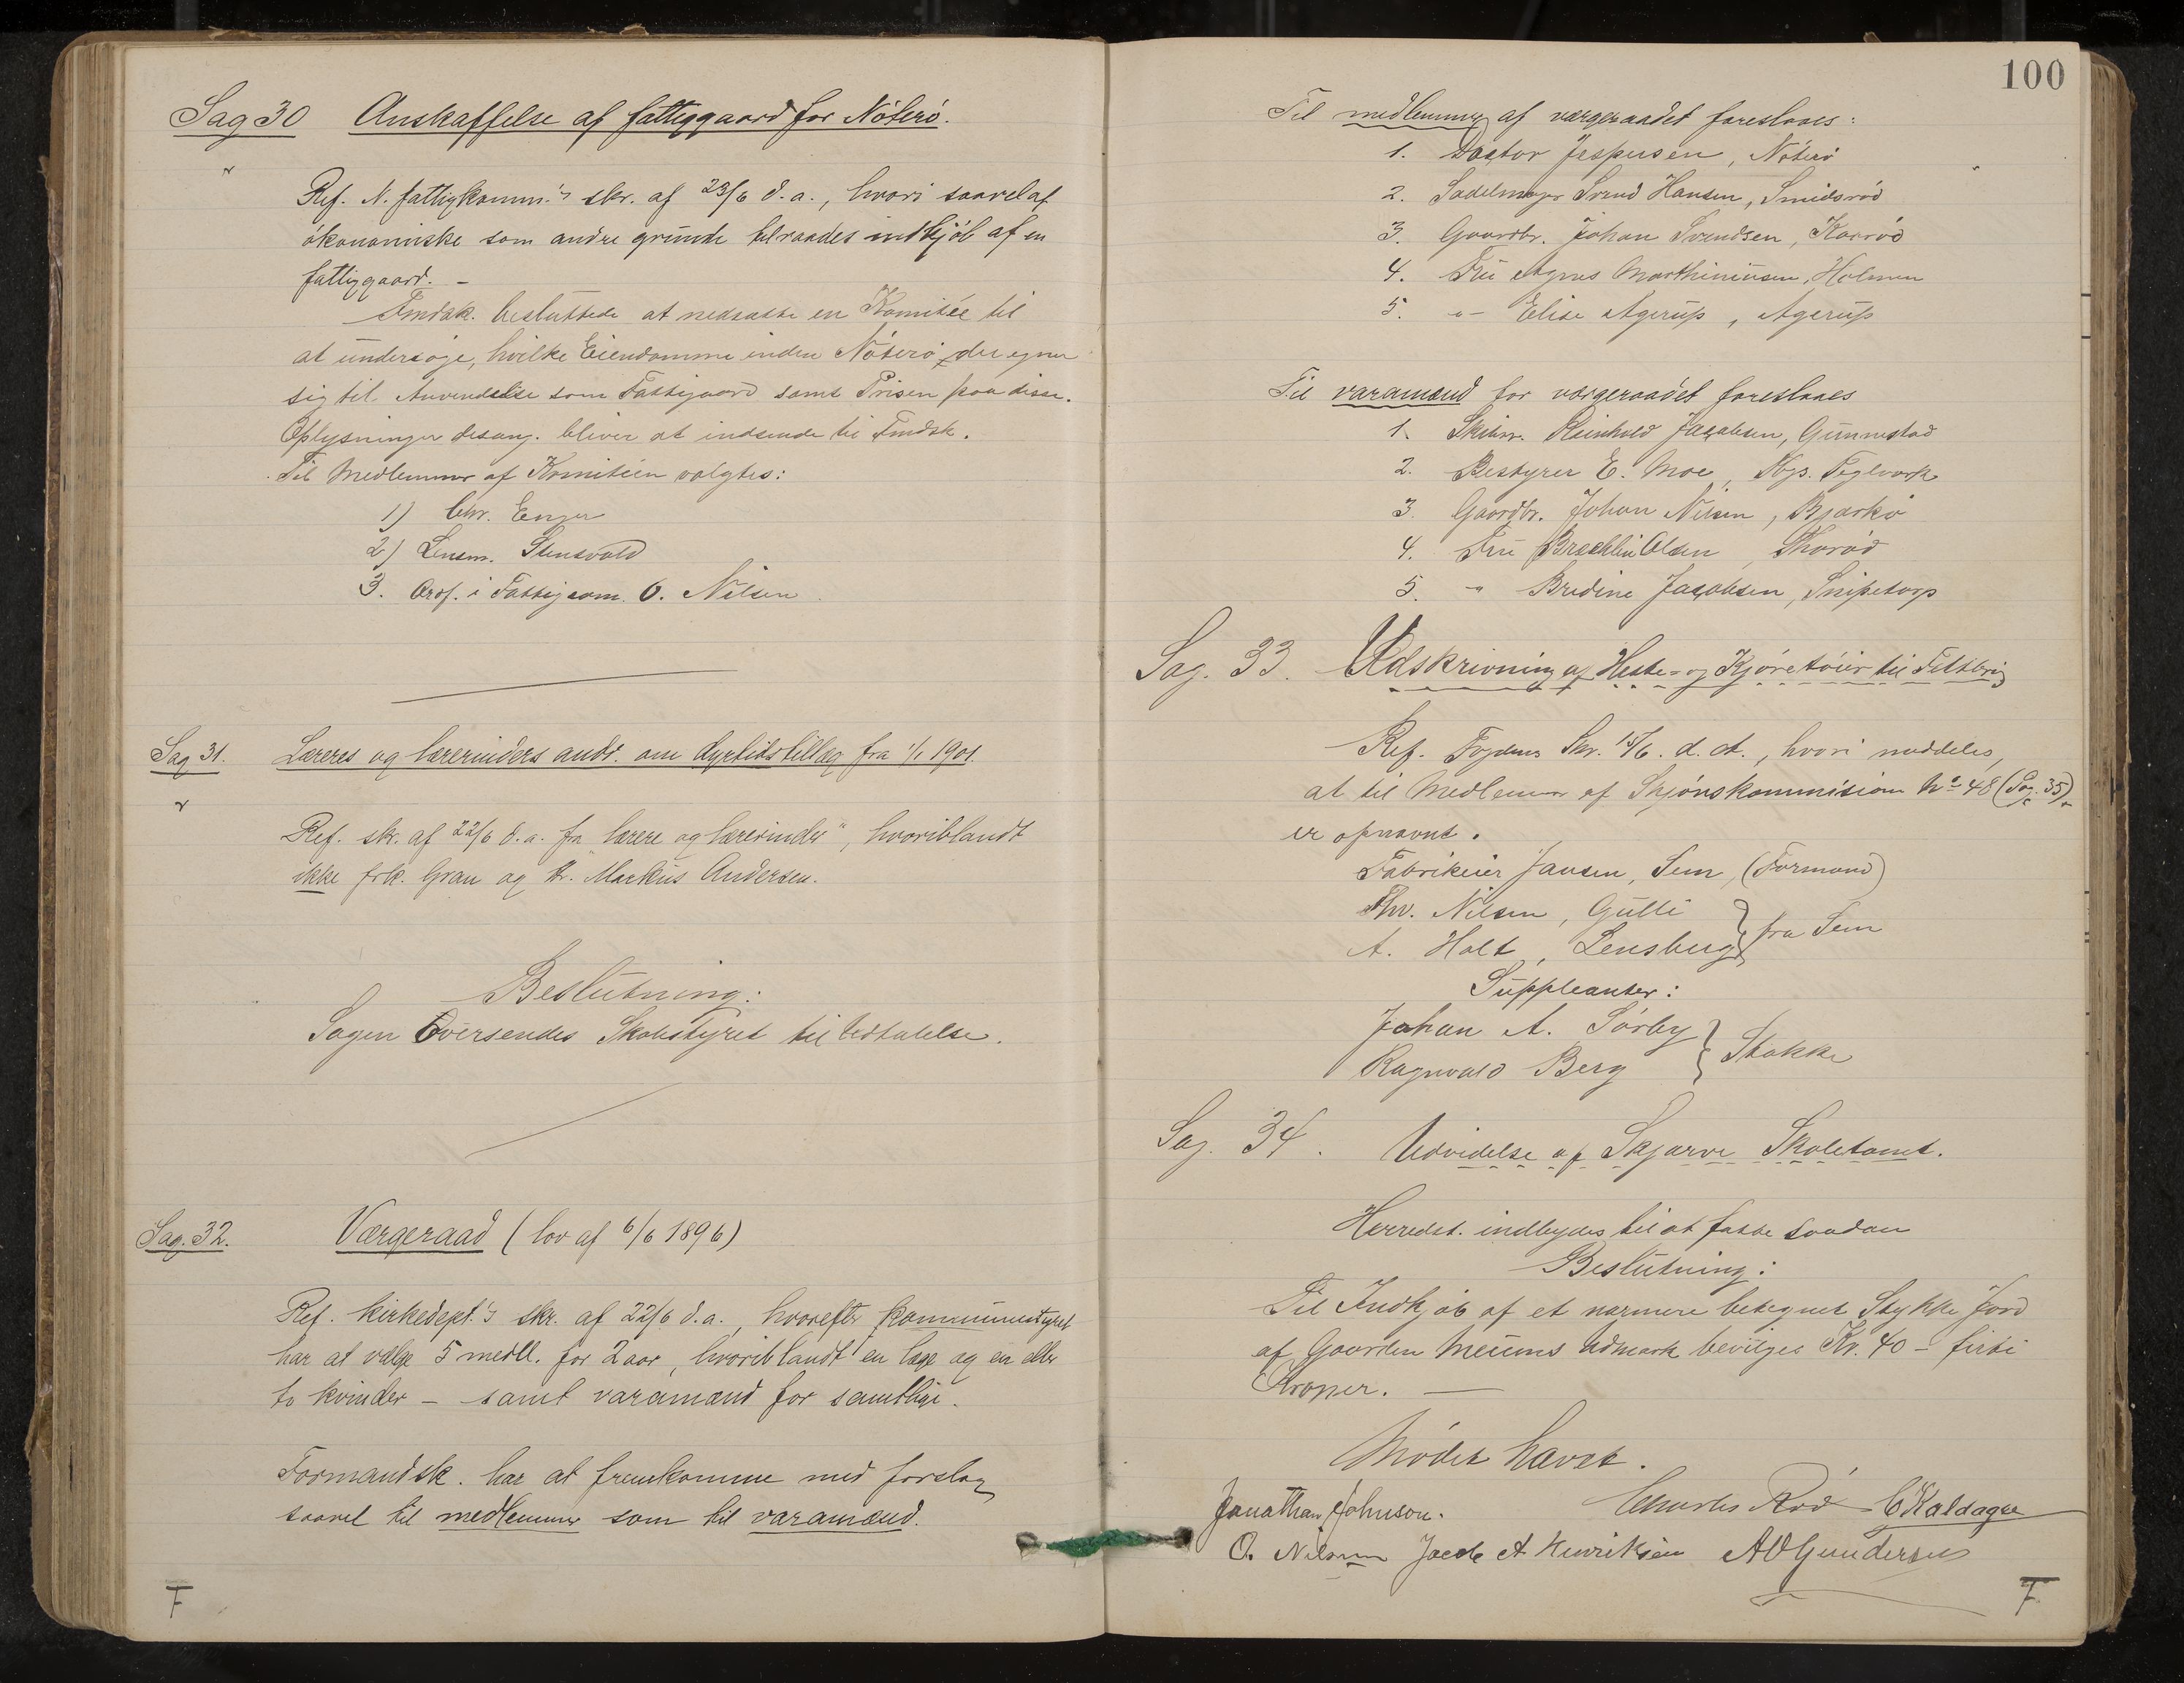 Sag 30 Anskaffelse af fattiggaard for Nøterø.
Ref. N. fattigkomm.'s skr. af 23/6 d.a., hvori saavel af
økonomiske som andre grunde tilraades indkjøb af en
fattiggaard. –
Fmdsk. besluttede at nedsætte en Komitée til
at undersøge, hvilke Eiendomme inden Nøterø, der egner
sig til Anvendelse som Fattigaard samt Prisen paa disse.
Oplysninger desang. bliver at indsende til Fmdsk.
Til Medlemmer af Komitéen valgtes:
1) Chr. Enger
2) Lensm. Stensvold
3. Ordf. i Fattigcom. O. Nilsen
Sag 31. Læreres og lærerinders andr. om dyrtidstillæg fra 1/1 1901.
Ref. skr. af 22/6 d.a. fra "lærere og lærerinder", hvoriblandt
ikke frk. Gran og hr. Markus Andersen.
Beslutning:
Sagen Oversendes Skolestyret til Udtalelse.
Sag. 32. Værgeraad (lov af 6/6 1896)
Ref. kirkedept.'s skr. af 22/6 d.a., hvorefter kommunestyret
har at vælge 5 medl. for 2 aar, hvoriblandt en læge og en eller
to kvinder – samt varamænd for samtlige.
Formandsk. har at fremkomme med forslag
saavel til medlemmer som til varamænd.
F
100
Til medlemmer af værgeraadet foreslaaes:
1. Doktor Jespersen, Nøterø
2. Sadelmager Svend Hansen, Smidsrød
3. Gaardbr. Johan Svendsen, Kaarød
4. Fru Agnes Marthiniusen, Holmen
5. –"– Elise Agerup, Agerup
Til varamænd for værgeraadet foreslaaes
1. Skibsr. Reinhold Jacobsen, Gunnestad
2. Bestyrer E. Moe, Teglværk
3. Gaardbr. Johan Nilsen, Bjerkø
4. Fru Olsen, Skorød
5. –"– Bredine Jacobsen, Snipetorp
Sag. 33. Udskrivning af Heste- og Kjøretøier til Feltbrug
Ref. Fogdens Skr. 15/6. d.A., hvori meddeles,
at til Medlemmer af Skjønskommission No 48 (Sag. 35)
er opnævnt.
Fabrikeier Jansen, Sem, (Formand)
Thv. Nilsen, Gulli
A. Holt, Lensberg } fra Sem
Suppleanter:
Johan A. Sørby
Ragnvald Berg } Stokke
Sag. 34. Udvidelse af Skjærve Skoletomt.
Herredst. indbydes til at fatte saadan
Beslutning:
Til Indkjøb af et nærmere betegnet Stykke Jord
af Gaarden Meums Udmark bevilges Kr. 40 – firti
Kroner. –
Mødet hævet.
Jonathan Johnson. Charles Rød C Kaldager
O. Nilsen Jacob A Henriksen A O Gundersen
F.